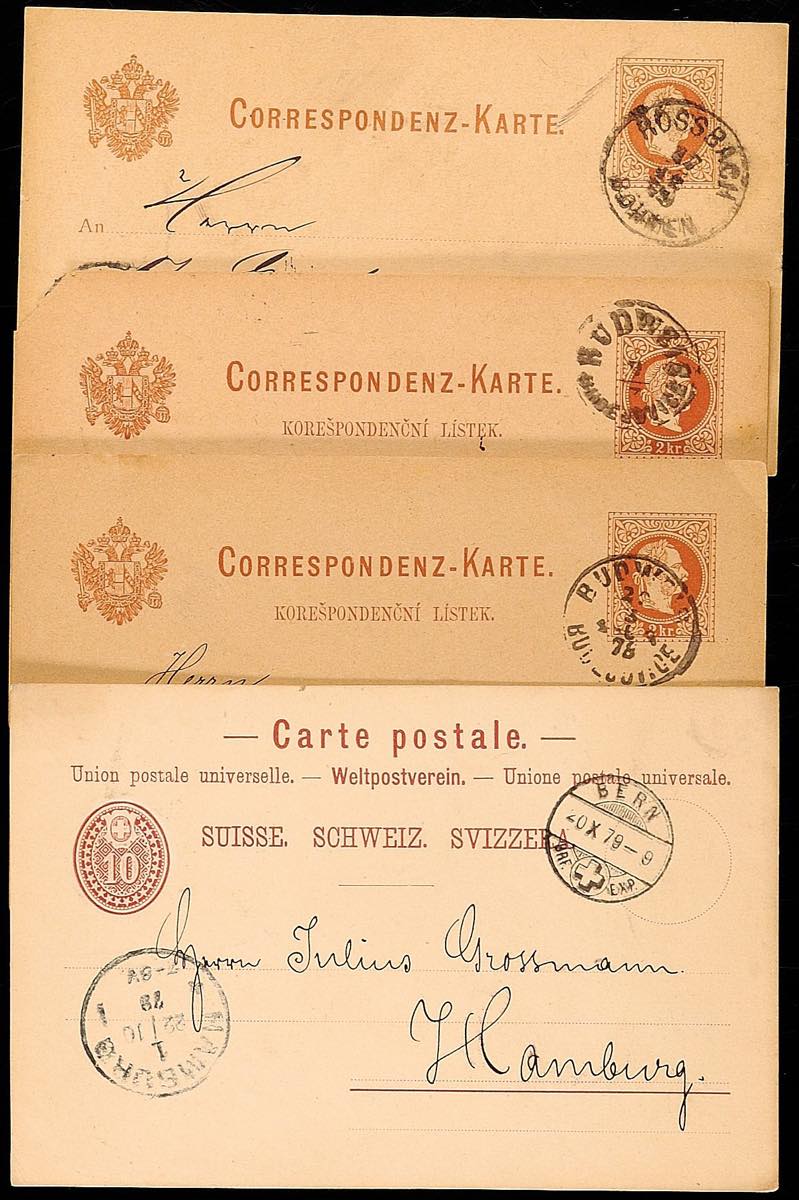 CORRESPONDENZ-KARTE.
ROSSBACH
Herrn
An
CORRESPONDENZ-KARTE.
KOREŠPONDENČNÍ LÍSTEK.
2 kr.
CORRESPONDENZ-KARTE.
KOREŠPONDENČNÍ LÍSTEK.
BUDWEIS
78
2 kr.
Herrn
— Carte postale. —
Union postale universelle. — Weltpostverein. — Unione postale universale.
BERN
20 X 79 - 9
BRF. EXP.
10
SUISSE. SCHWEIZ. SVIZZERA.
Herrn Julius Grossmann.
Hamburg.
HAMBURG
1
22/10
79